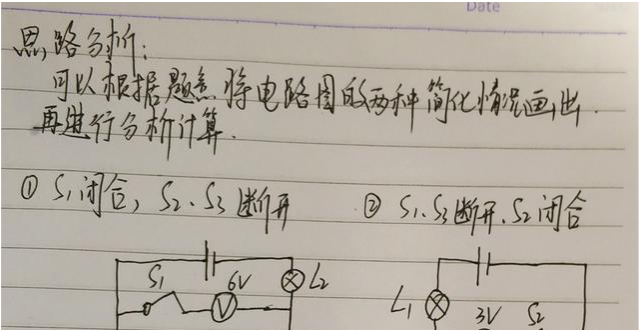 Date
思路分析:
可以根据题意将电路图的两种简化情况画出.
再进行分析计算.
① S₁闭合, S₂、S₃断开
② S₁、S₃断开、S₂闭合
S₁ 6V V L₂
L₁ 3V S₂